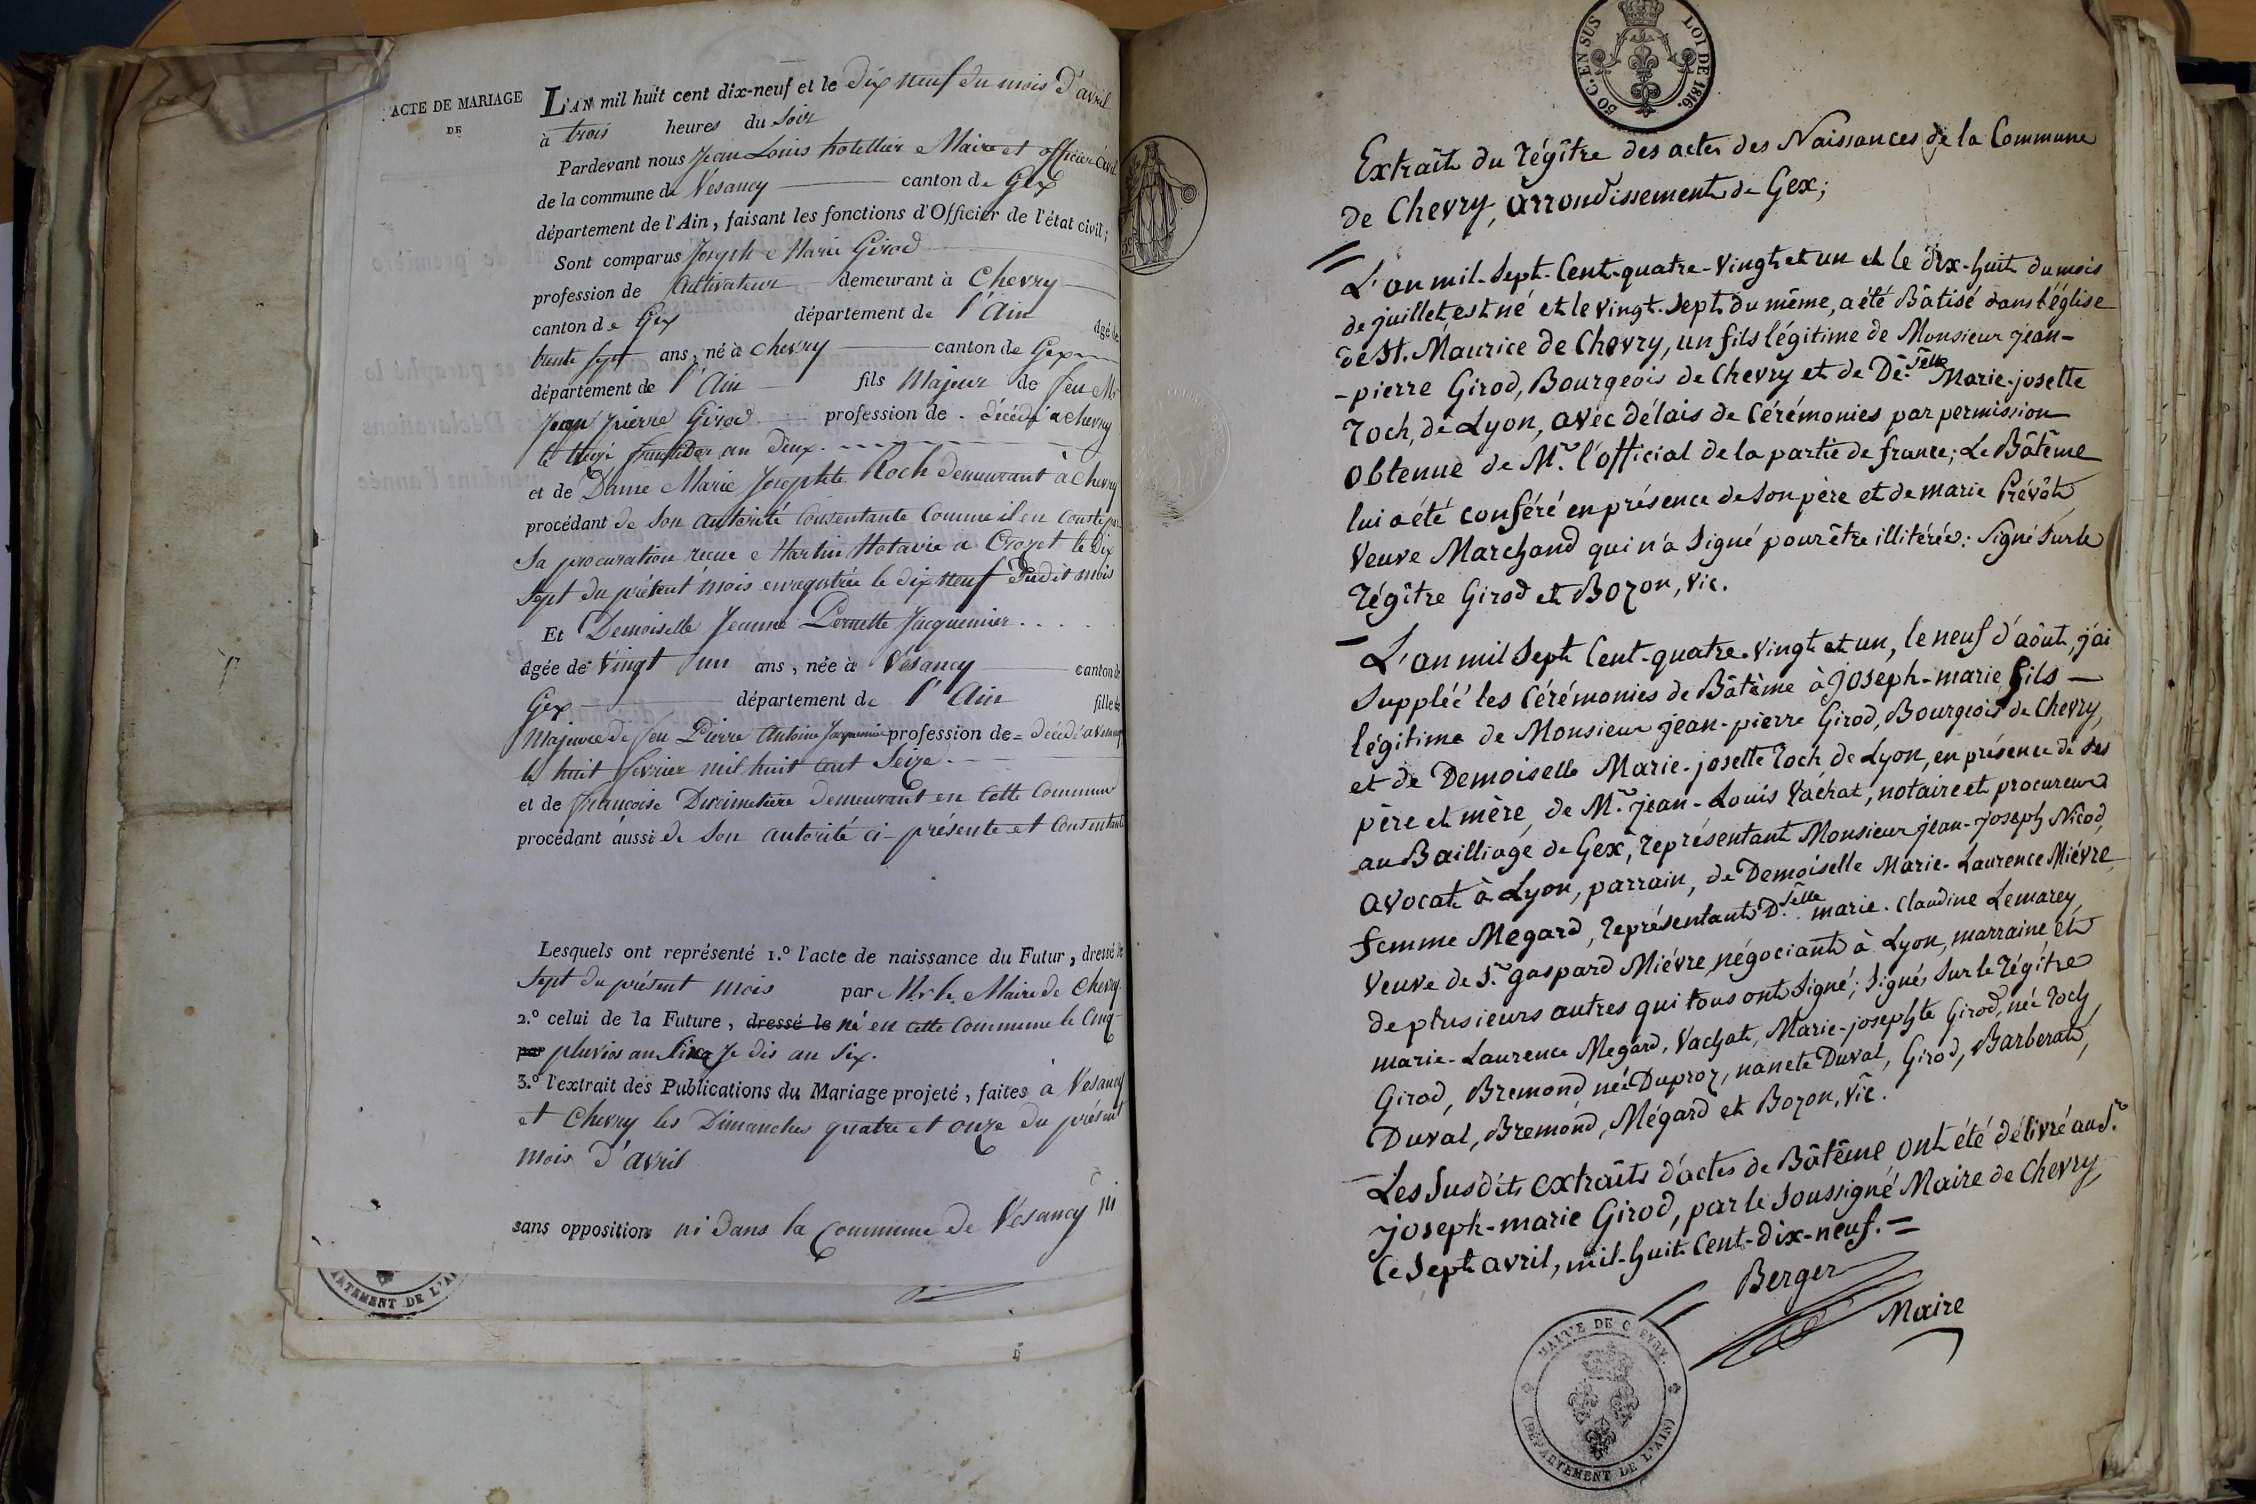 ACTE DE MARIAGE
DE
L'AN mil huit cent dix-neuf et le dix neuf du mois d'avril
à trois heures du soir
Pardevant nous Jean Louis hotellier Maire et officier Civil
de la commune de Vesancy canton de Gex
département de l'Ain, faisant les fonctions d'Officier de l'état civil;
Sont comparus Joseph Marie Girod
profession de Cultivateur demeurant à Chevry
canton de Gex département de l'Ain âgé de
trente sept ans, né à Chevry canton de Gex
département de l'Ain fils Majeur de feu Mr
Jean pierre Girod profession de décédé a chevry
le treize fructidor an deux.
et de Dame Marie Josephte Roch demeurant à Chevry
procédant de son autorité Consentante Comme il en conste par
Sa procuration recue Martin Notaire a Crozet le Dix
Sept du présent mois enregistrée le dix neuf dudit mois
Et Demoiselle Jeanne Pernette Jacquemier
âgée de vingt un ans, née à Vesancy canton de
Gex département de l'Ain fille de
Majeure de feu Pierre Antoine Jacquemier profession de décédé a Vesancy
le huit fevrier mil huit cent Seize.
et de françoise demeurant en cette Commune
procédant aussi de son autorité ci-présente et Consentante
Lesquels ont représenté 1.º l'acte de naissance du Futur, dressé le
Sept du présent mois par Mr le Maire de Chevry.
2.º celui de la Future, dressé le né en cette Commune le Cinq
par pluvios an Six Je dis an Six.
3.º l'extrait des Publications du Mariage projeté, faites à Vesancy
et Chevry les Dimanches quatre et onze du présent
mois d'avril
sans opposition ni dans la Commune de Vesancy ni
ARTEMENT DE L'A
50 C. EN SUS LOI DE 1816.
Extrait du régître des actes des Naissances de la Commune
de Chevry, arrondissement de Gex;
L'an mil-Sept-Cent-quatre-Vingt et un et le dix-huit du mois
de juillet est né et le vingt-sept du même, a été Bâtisé dans l'église
de St. Maurice de Chevry, un fils légitime de Monsieur jean-
-pierre Girod, Bourgeois de Chevry et de De.selle Marie-josette
roch, de Lyon, avec délais de Cérémonies par permission
obtenue de Mr. l'official de la partie de france; Le Bâtême
lui a été conféré en présence de son père et de marie Prévôt
Veuve Marchand qui n'a signé pour être illitérée: Signé sur le
régître Girod et Bozon, Vic.
L'an mil Sept Cent-quatre-Vingt et un, le neuf d'aôut, j'ai
Suppléé les Cérémonies de Bâtême à joseph-marie fils
légitime de Monsieur jean-pierre Girod, Bourgeois de Chevry,
et de Demoiselle Marie-josette roch de Lyon, en présence de ses
père et mère, de Mr. jean-Louis Vachat, notaire et procureur
au Bailliage de Gex, représentant Monsieur jean-joseph Nicod,
avocat à Lyon, parrain, de Demoiselle Marie-Laurence Miévre
femme Megard, représentant D.selle marie-Claudine Lemarey,
Veuve de Sr. gaspard Miévre, négociant à Lyon, marraine et
de plusieurs autres qui tous ont signé; signés sur le régître
marie-Laurence Megard, Vachat, Marie-josephte Girod, née roch,
Girod, Bremond née Duproz, nanete Duval, Girod, Barberat,
Duval, Bremond, Mégard et Bozon, Vic.
Les susdits extraits d'actes de Bâtême ont été délivré au Sr.
joseph-marie Girod, par le soussigné Maire de Chevry,
Ce sept avril, mil-huit-Cent-dix-neuf.=
Berger
Maire
MAIRIE DE CHEVRY.
(DÉPARTEMENT DE L'AIN)